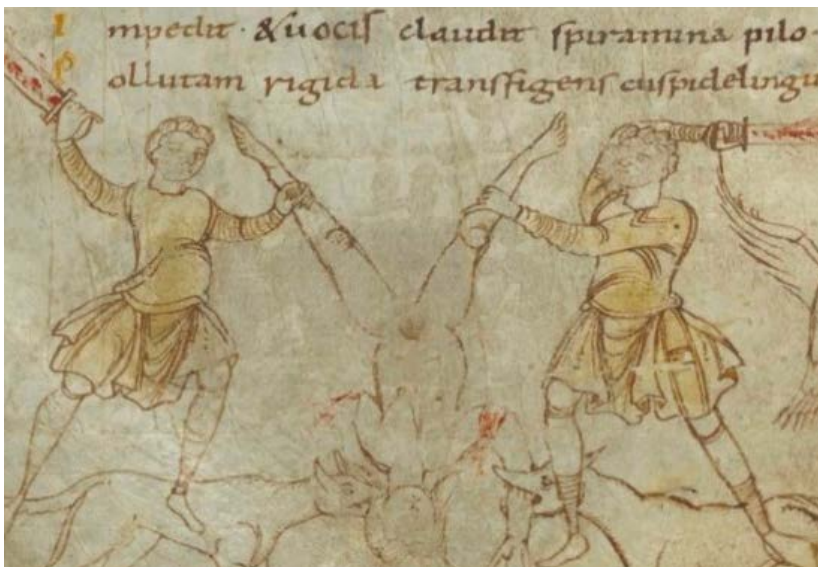 Impedit · & uocis claudit spiramina pilo ·
Pollutam rigida transfigens cuspide lingu